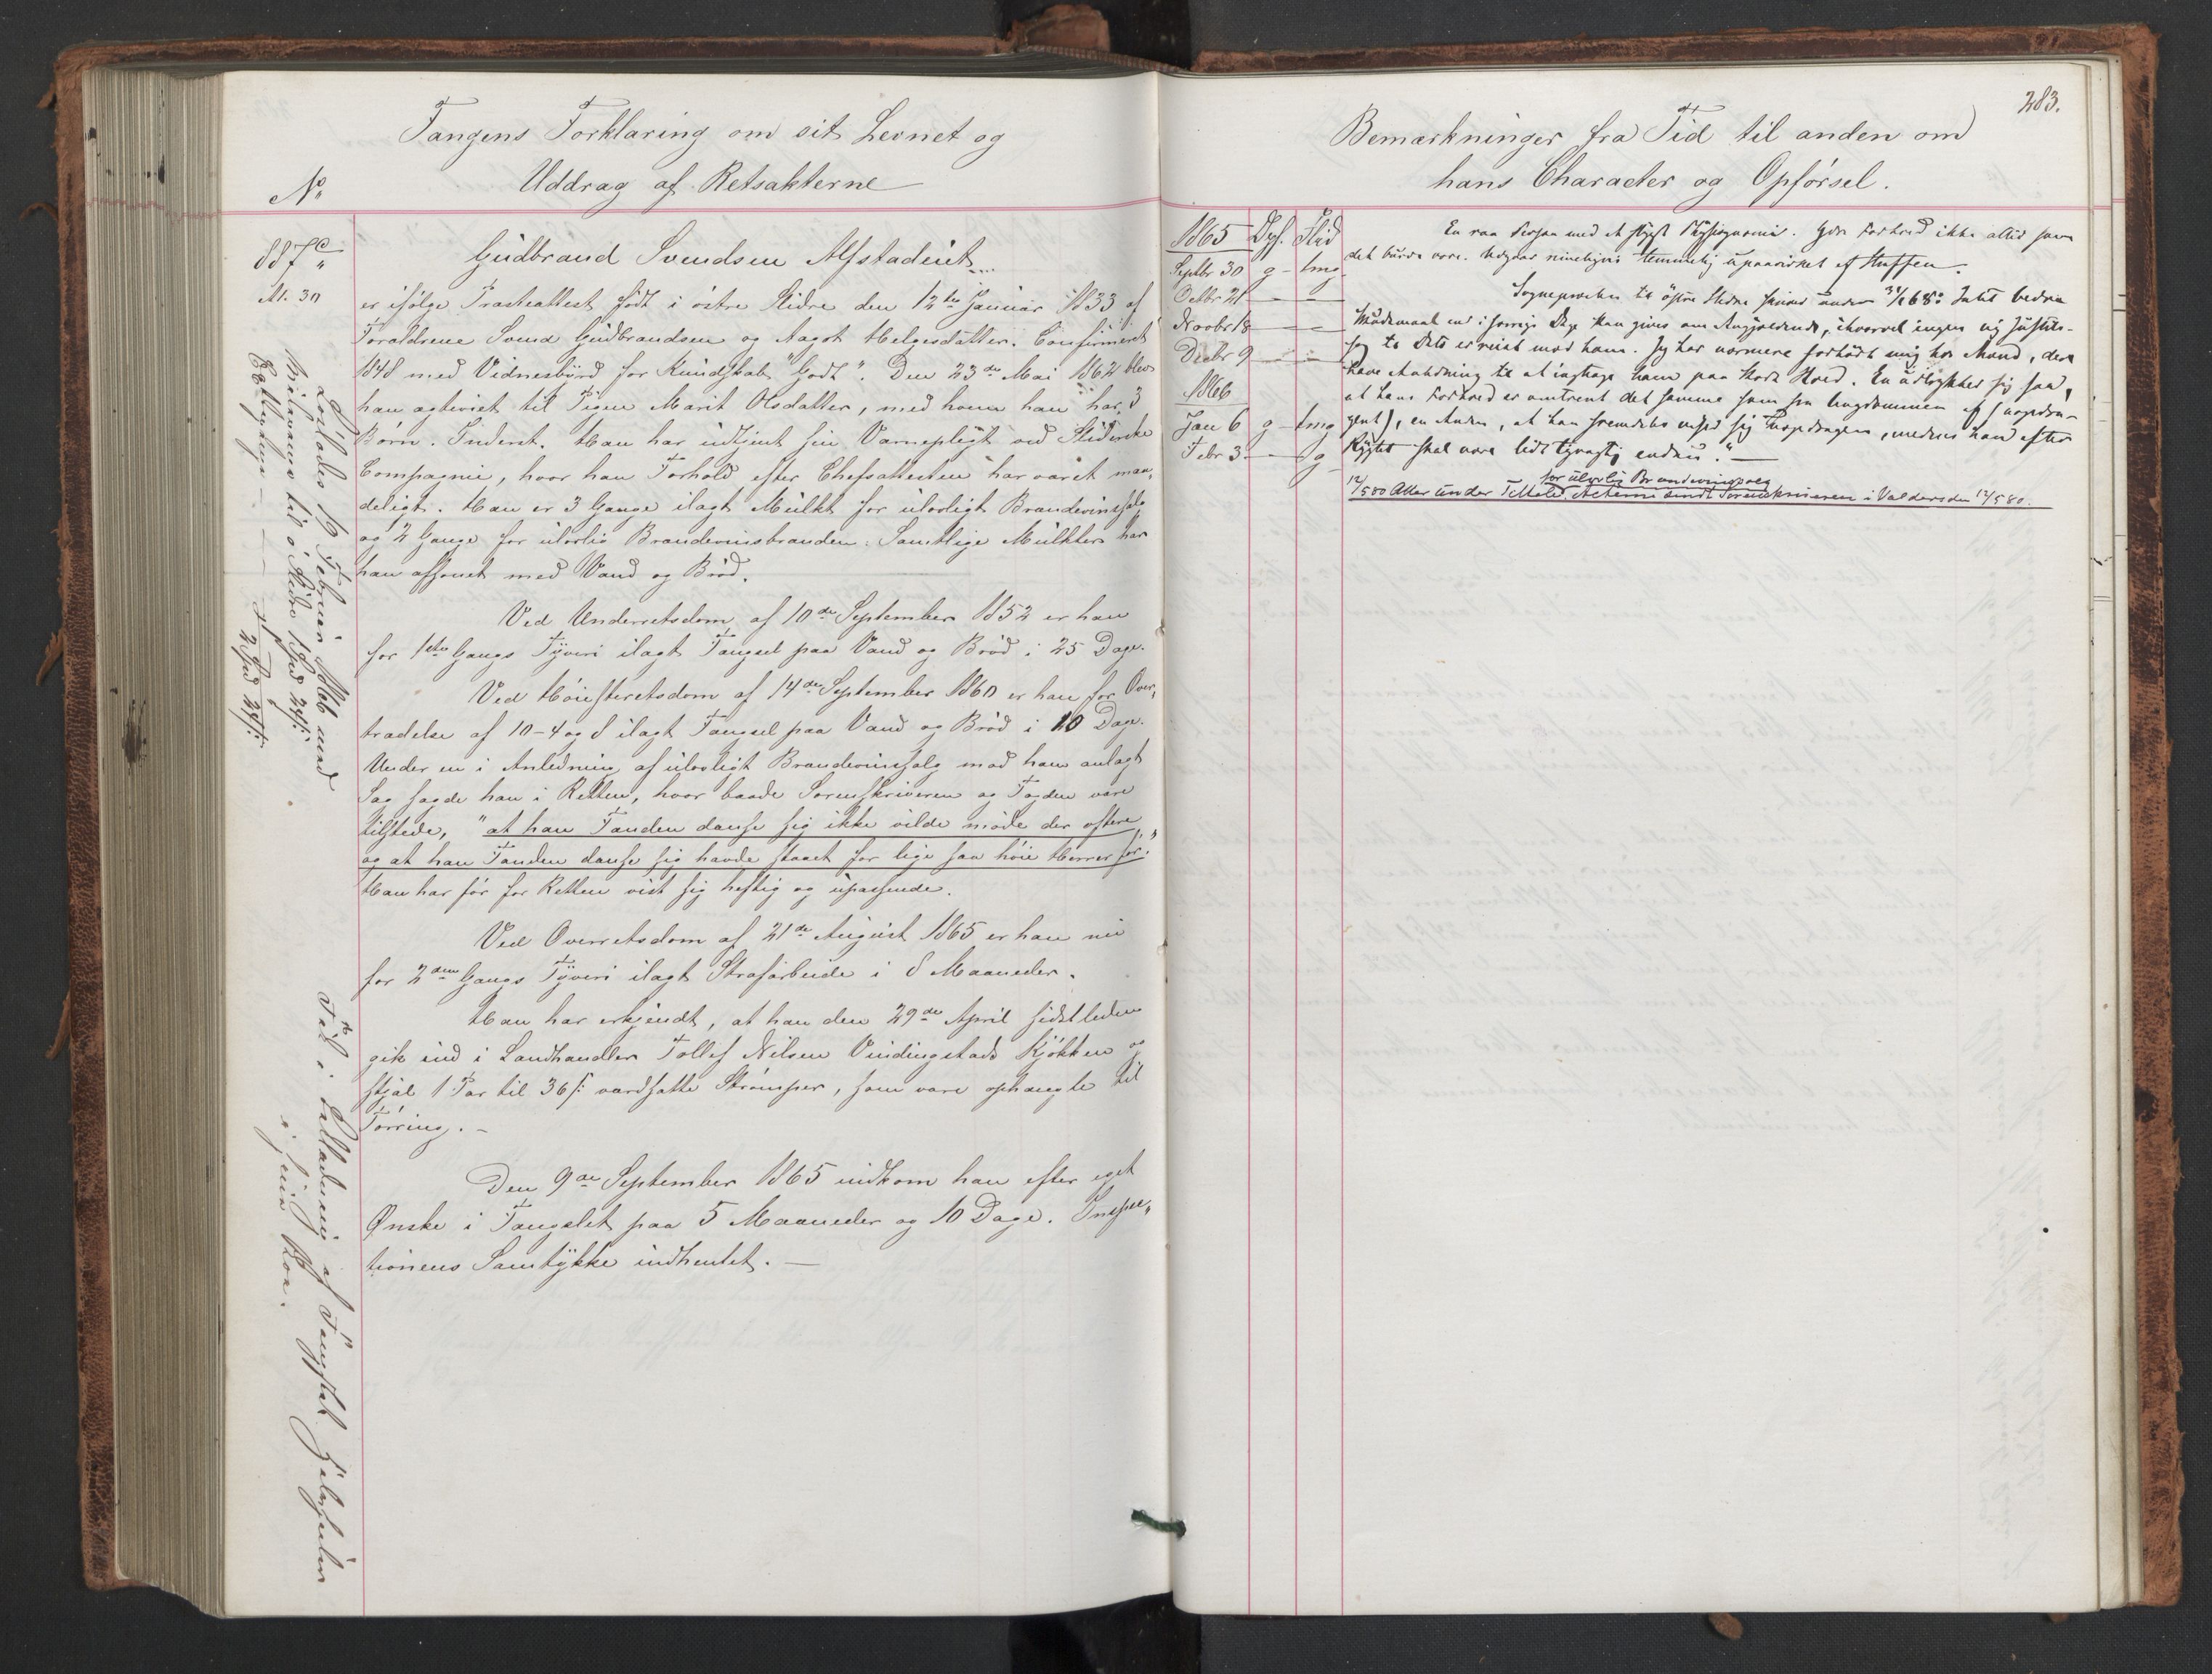 Fangens Forklaring om sit Levnet og
Uddrag af Retsakterne
No
887 c
At. 30
Gudbrand Svendsen Alfstadeiet
er ifølge Præsteattest født i östre Slidre den 12te Januar 1833 af
Forældrene Svend Gudbrandsen og Aagot Helgesdatter. Confirmeret
1848 med Vidnesbyrd for Kundskab "Godt". Den 23de Mai 1862 blev
han ægteviet til Pigen Marit Olsdatter, med hvem han har 3
Børn. Inderst. Han har udtjent sin Værnepligt ved Slidreske
Compagnie, hvor han Forhold efter Chefsattesten har været maa„
deligt. Han er 3 Gange ilagt Mulkt for ulovligt Brændevinssalg
og 2 Gange for ulovlig Brændevinsbrænden. Samtlige Mulkter har
han afsonet med Vand og Brød.
Ved Underretsdom af 10de September 1852 er han
for 1ste Gangs Tyveri ilagt Fængsel paa Vand og Brød i 25 Dage.
Ved Høiesteretsdom af 14de September 1860 er han for Over„
trædelse af 10-4 og 8 ilagt Fængsel paa Vand og Brød i 10 Dage.
Under en i Anledning af ulovligt Brændevinssalg mod ham anlagt
Sag sagde han i Retten, hvor baade Sorenskriveren og Fogden vare
tilstede, "at han Fanden danse sig ikke vilde møde der oftere
og at han Fanden danse sig havde staaet for lige saa høie Herrer før."
Han har før for Retten vist sig heftig og upassende.
Ved Overretsdom af 21de August 1865 er han nu
for 2den Gangs Tyveri ilagt Strafarbeide i 8 Maaneder.
Han har erkjendt, at han den 29de April sidstleden
gik ind i Landhandler Tollef Nilsen Vindingstads Kjøkken og
stjal 1 Par til 36 s: værdsatte Strømper, som vare ophængte til
Tørring. –
Den 9de September 1865 indkom han efter eget
Ønske i Fængslet paa 5 Maaneder og 10 Dage. Inspec„
tionens Samtykke indhentet. –
Løslades 19 Februar 1866 med
Reisepenge til ö. Slidre 1 Spd 24 s:
2 Spd 24 s:
Fød i
af Fængslet
i
283.
Bemærkninger fra Tid til anden om
hans Character og Opførsel.
1865 Opf. Flid
Septbr 30 g – tmg
Octbr 21 — —
Novbr 18 — —
Decbr 9 — —
1866
Jan 6 g – tmg
Febr 3 — g
En raa Person med et stygt Physiognomi. Gjør Fortred ikke altid som
det burde være. Udgaar rimeligvis temmelig upaavirket af Straffen.
Sognepræsten til östre Slidre skriver under 31/1 68: Intet bedre
Skudsmaal end i forrige Dage kan gives om Angjældende, ihvorvel ingen ny Justits-
sag til Dato er reist mod ham. Jeg har nærmere forhørt mig hos Mænd, der
have Anledning til at iagttage ham paa Steder Hved. En udtrykker sig saa,
at hans Forhold er omtrent det samme som fra Ungdommen af (uopdra-
gent), en Anden, at han fremdeles viser sig uopdragen, medens han efter
Rygtet skal være lidt tyvagtig endnu." —
for ulovlig Brændevinssalg
12/5 80 Atter under Tiltale. Acterne sendt Sorenskriveren i Valders den 12/5 80.